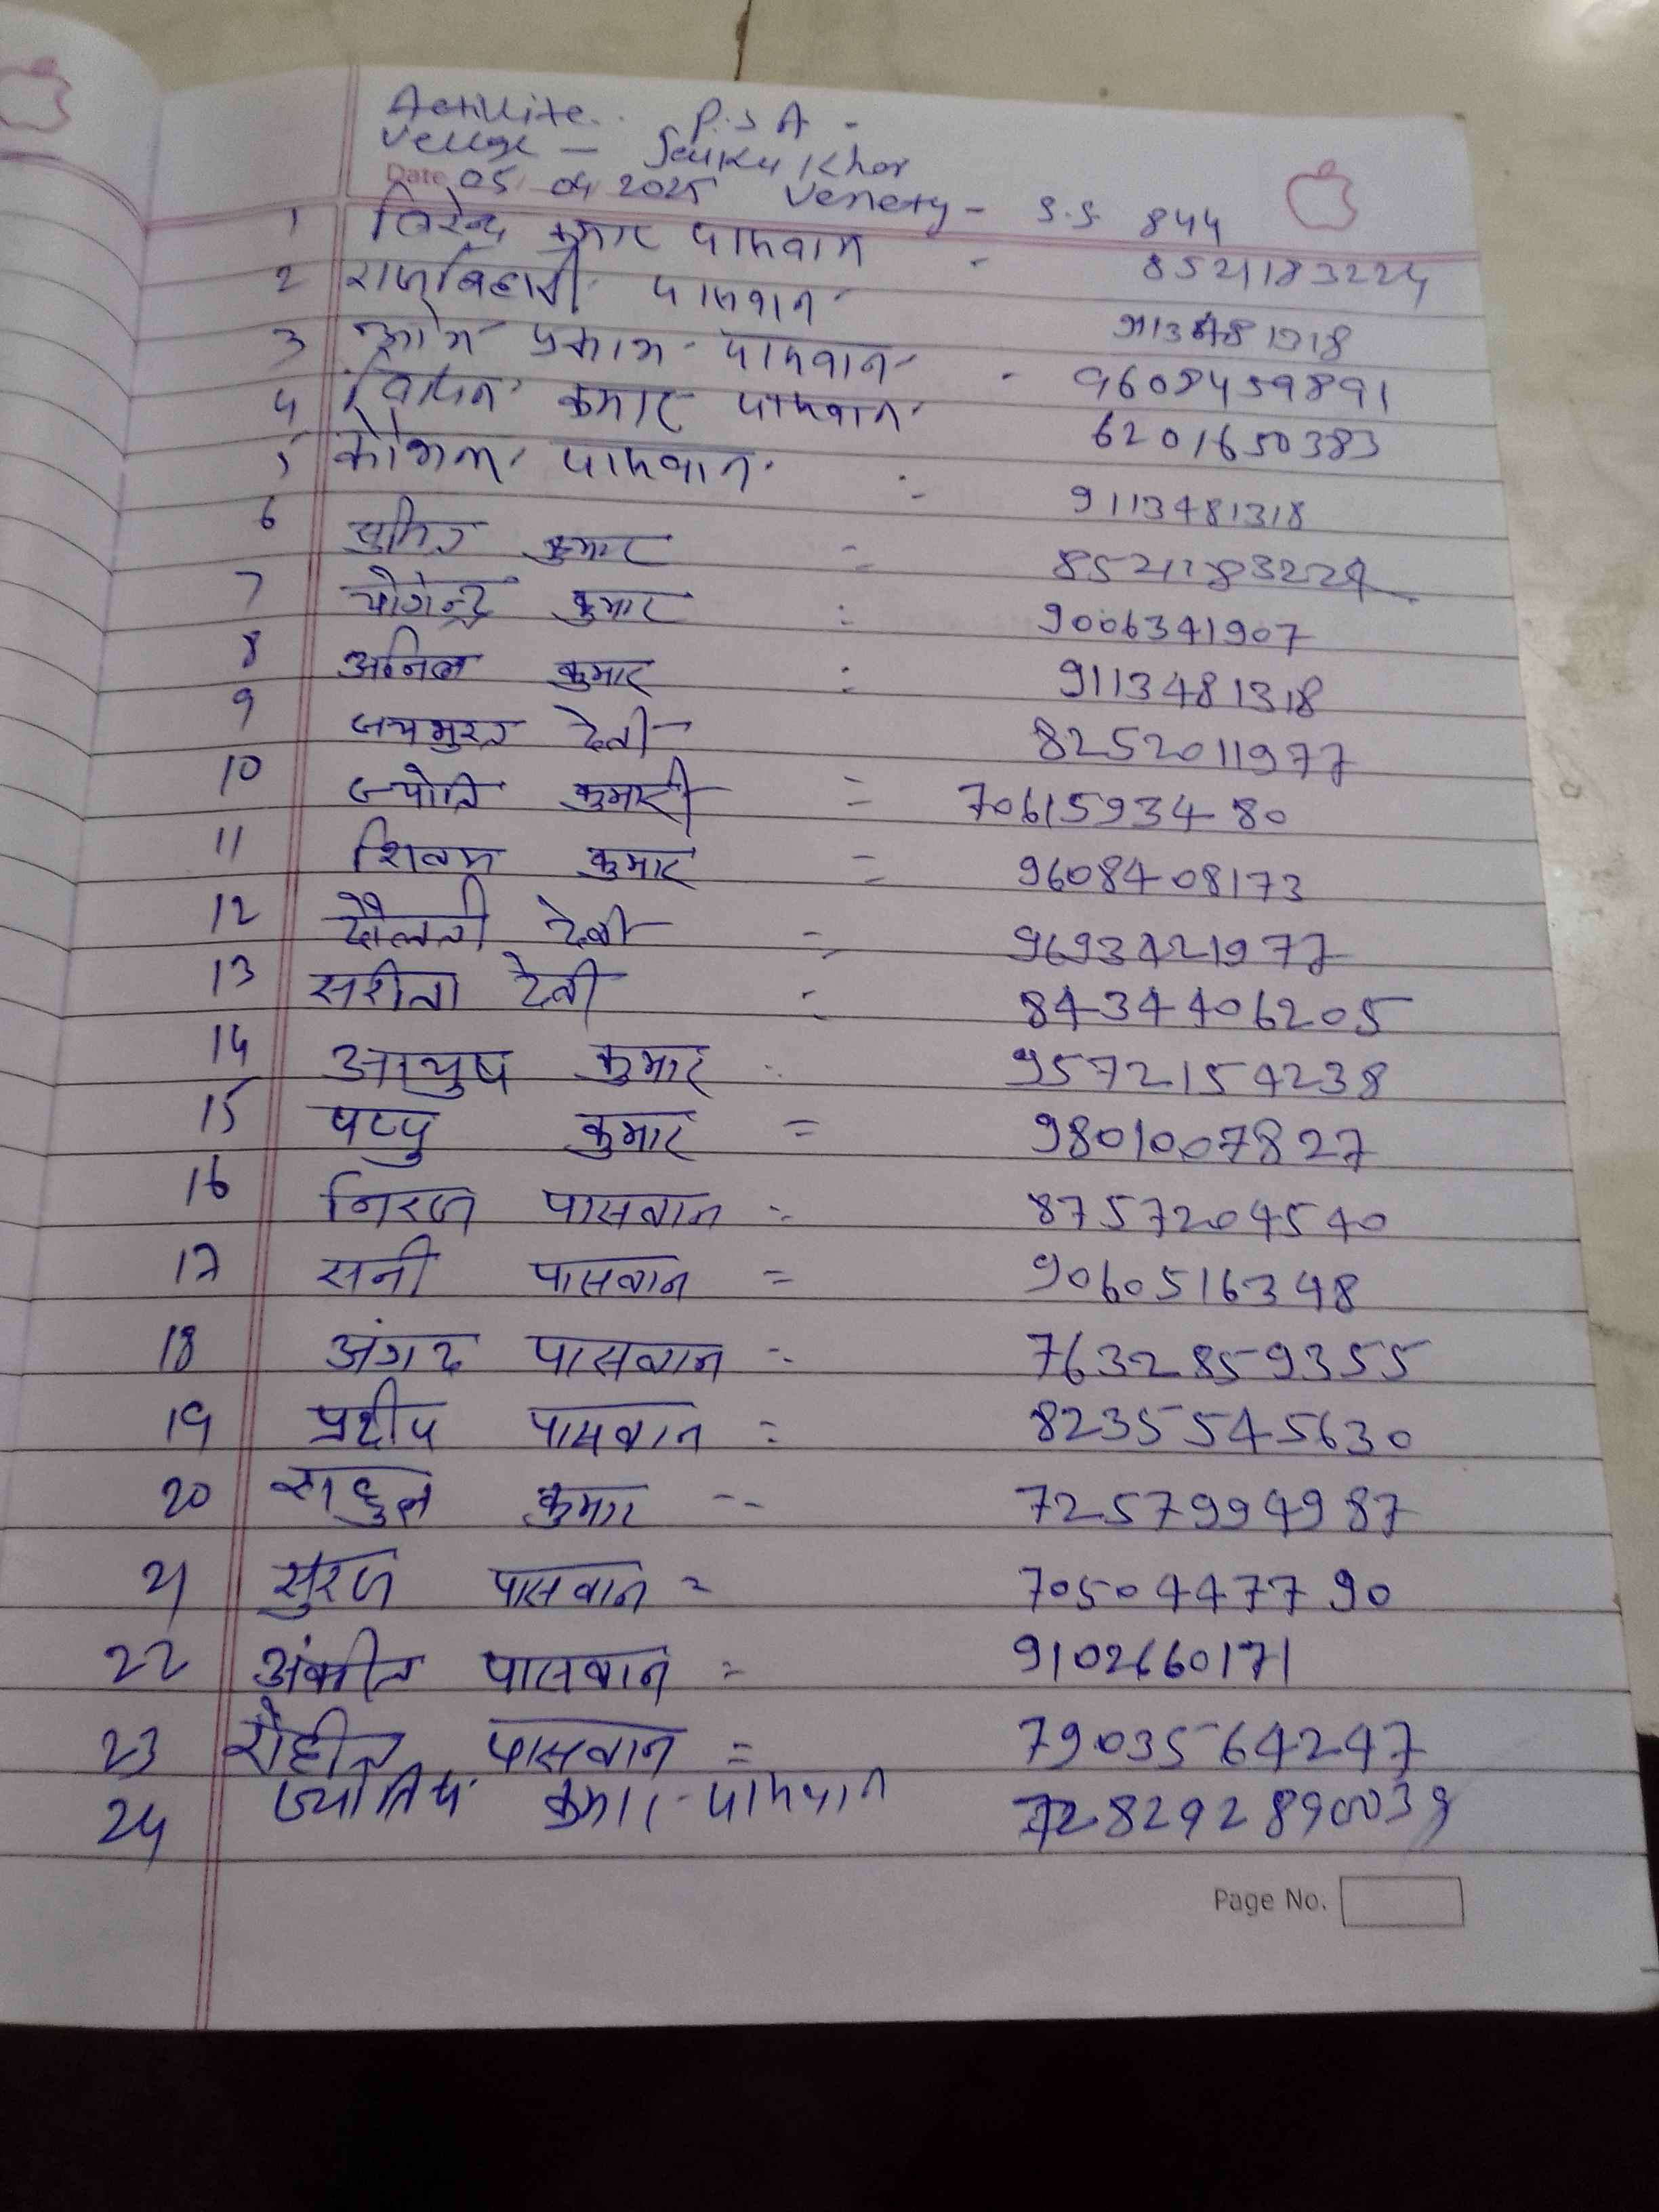 Activite.. P.S A -
Vellage - Senku Khor
Date 05 04 2025 Veriety - S.S. 844
1 विरेन्द्र कुमार पासवान - 8521183224
2 राजबिहारी पासवान 9113481318
3 ओम प्रकाश पासवान - 9608459891
4 विपिन कुमार पासवान 6201650383
5 कौशल पासवान - 9113481318
6 सुमित कुमार = 8521183224
7 योगेन्द्र कुमार : 9006341907
8 अनिल कुमार : 9113481318
9 जयमुरत देवी 8252011977
10 ज्योति कुमारी = 7061593480
11 शिवम कुमार = 9608408173
12 दौलती देवी = 9693421977
13 सरीता देवी : 8434406205
14 आयुष कुमार - 9572154238
15 पप्पु कुमार = 9801007827
16 निरज पासवान = 8757204540
17 सनी पासवान = 9060516348
18 अंगद पासवान = 7632859355
19 प्रदीप पासवान = 8235545630
20 राहुल कुमार -- 7257994987
21 सुरज पासवान = 7050447790
22 अंकीत पासवान = 9102660171
23 रोहीत पासवान = 7903564247
24 ज्योतिष कुमार पासवान
Page No.